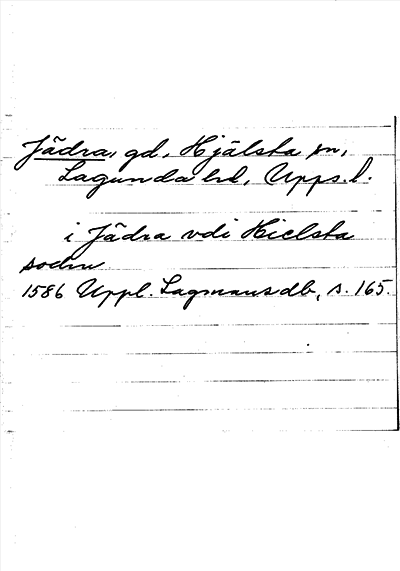 Jädra, gd, Hjälsta sn,
Lagunda hd, Upps. l.
i Jädra vdi Hielsta
sodnn
1586 Uppl. Lagmansdb, s. 165.